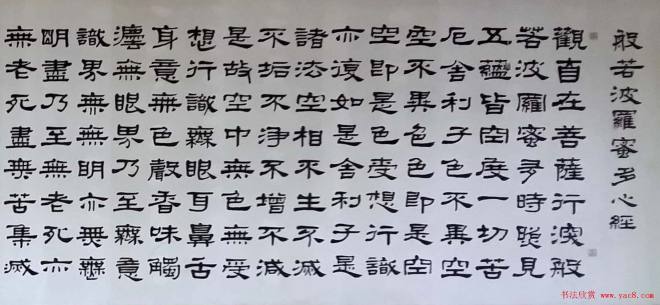 般若波羅蜜多心經
觀自在菩薩行深般
若波羅蜜多時照見
五蘊皆空度一切苦
厄舍利子色不異空
空不異色色即是空
空即是色受想行識
亦復如是舍利子是
諸法空相不生不滅
不垢不淨不增不減
是故空中無色無受
想行識無眼耳鼻舌
身意無色聲香味觸
灋無眼界乃至無意
識界無無明亦無無
明盡乃至無老死亦
無老死盡無苦集滅
书法欣赏
www.yac8.com